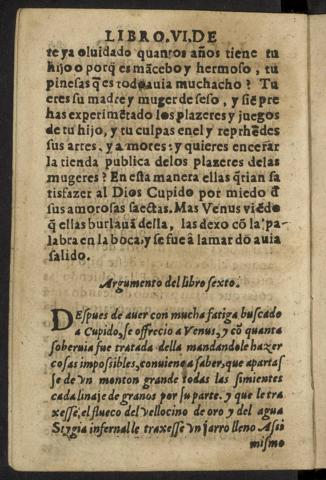 LIBRO.VI.DE
te ya oluidado quantos años tiene tu
hijo o porq̃ es mãcebo y hermoso, tu
piẽsas q̃ es todauia muchacho? Tu
eres su madre y muger de seso, y siẽpre
has experimẽtado los plazeres y juegos
de tu hijo, y tu culpas en el y reprhẽdes
sus artes, y amores: y quieres encerar
la tienda publica delos plazeres delas
mugeres? En esta manera ellas q̃rian sa
tisfazer al Dios Cupido por miedo đ
sus amorosas saetas. Mas Venus viẽdo
q̃ ellas burlauã della, las dexo cõ la pa-
labra en la boca, y se fue à la mar dõ auia
salido.
Argumento del libro sexto.
DEspues de auer con mucha fatiga buscado
a Cupido, se offrecio a Venus, y cõ quanta
soberuia fue tratada della mandandole hazer
cosas impossibles, conuiene a saber, que apartas
se de vn monton grande todas las simientes
cada linaje de granos por su parte. y que le tra
xesse, el flueco del vellocino de oro y del agua
Stygia infernal le traxesse vn jarro lleno Assi
mismo